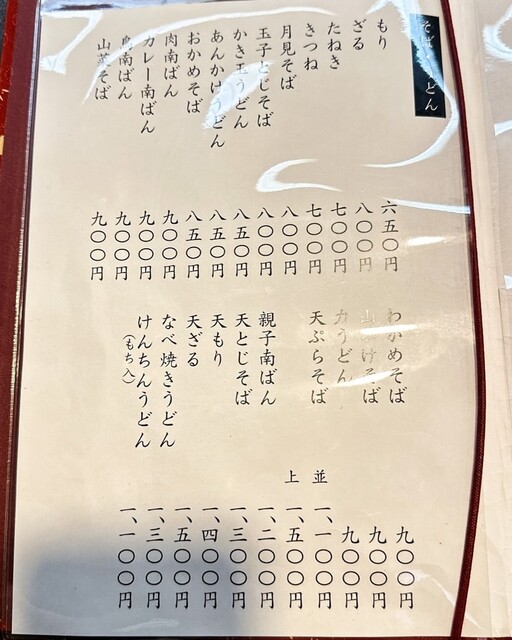 そば うどん
もり 六五〇円
ざる 八〇〇円
たぬき 七〇〇円
きつね 七〇〇円
月見そば 八〇〇円
玉子とじそば 八〇〇円
かき玉うどん 八五〇円
あんかけうどん 八五〇円
おかめそば 八五〇円
肉南ばん 九〇〇円
カレー南ばん 九〇〇円
鳥南ばん 九〇〇円
山菜そば 九〇〇円
わかめそば 九〇〇円
山かけそば 九〇〇円
力うどん 九〇〇円
天ぷらそば 並 一、一〇〇円
上 一、五〇〇円
親子南ばん 一、二〇〇円
天とじそば 一、三〇〇円
天もり 一、四〇〇円
天ざる 一、五〇〇円
なべ焼きうどん 一、三〇〇円
けんちんうどん 一、一〇〇円
（もち入）